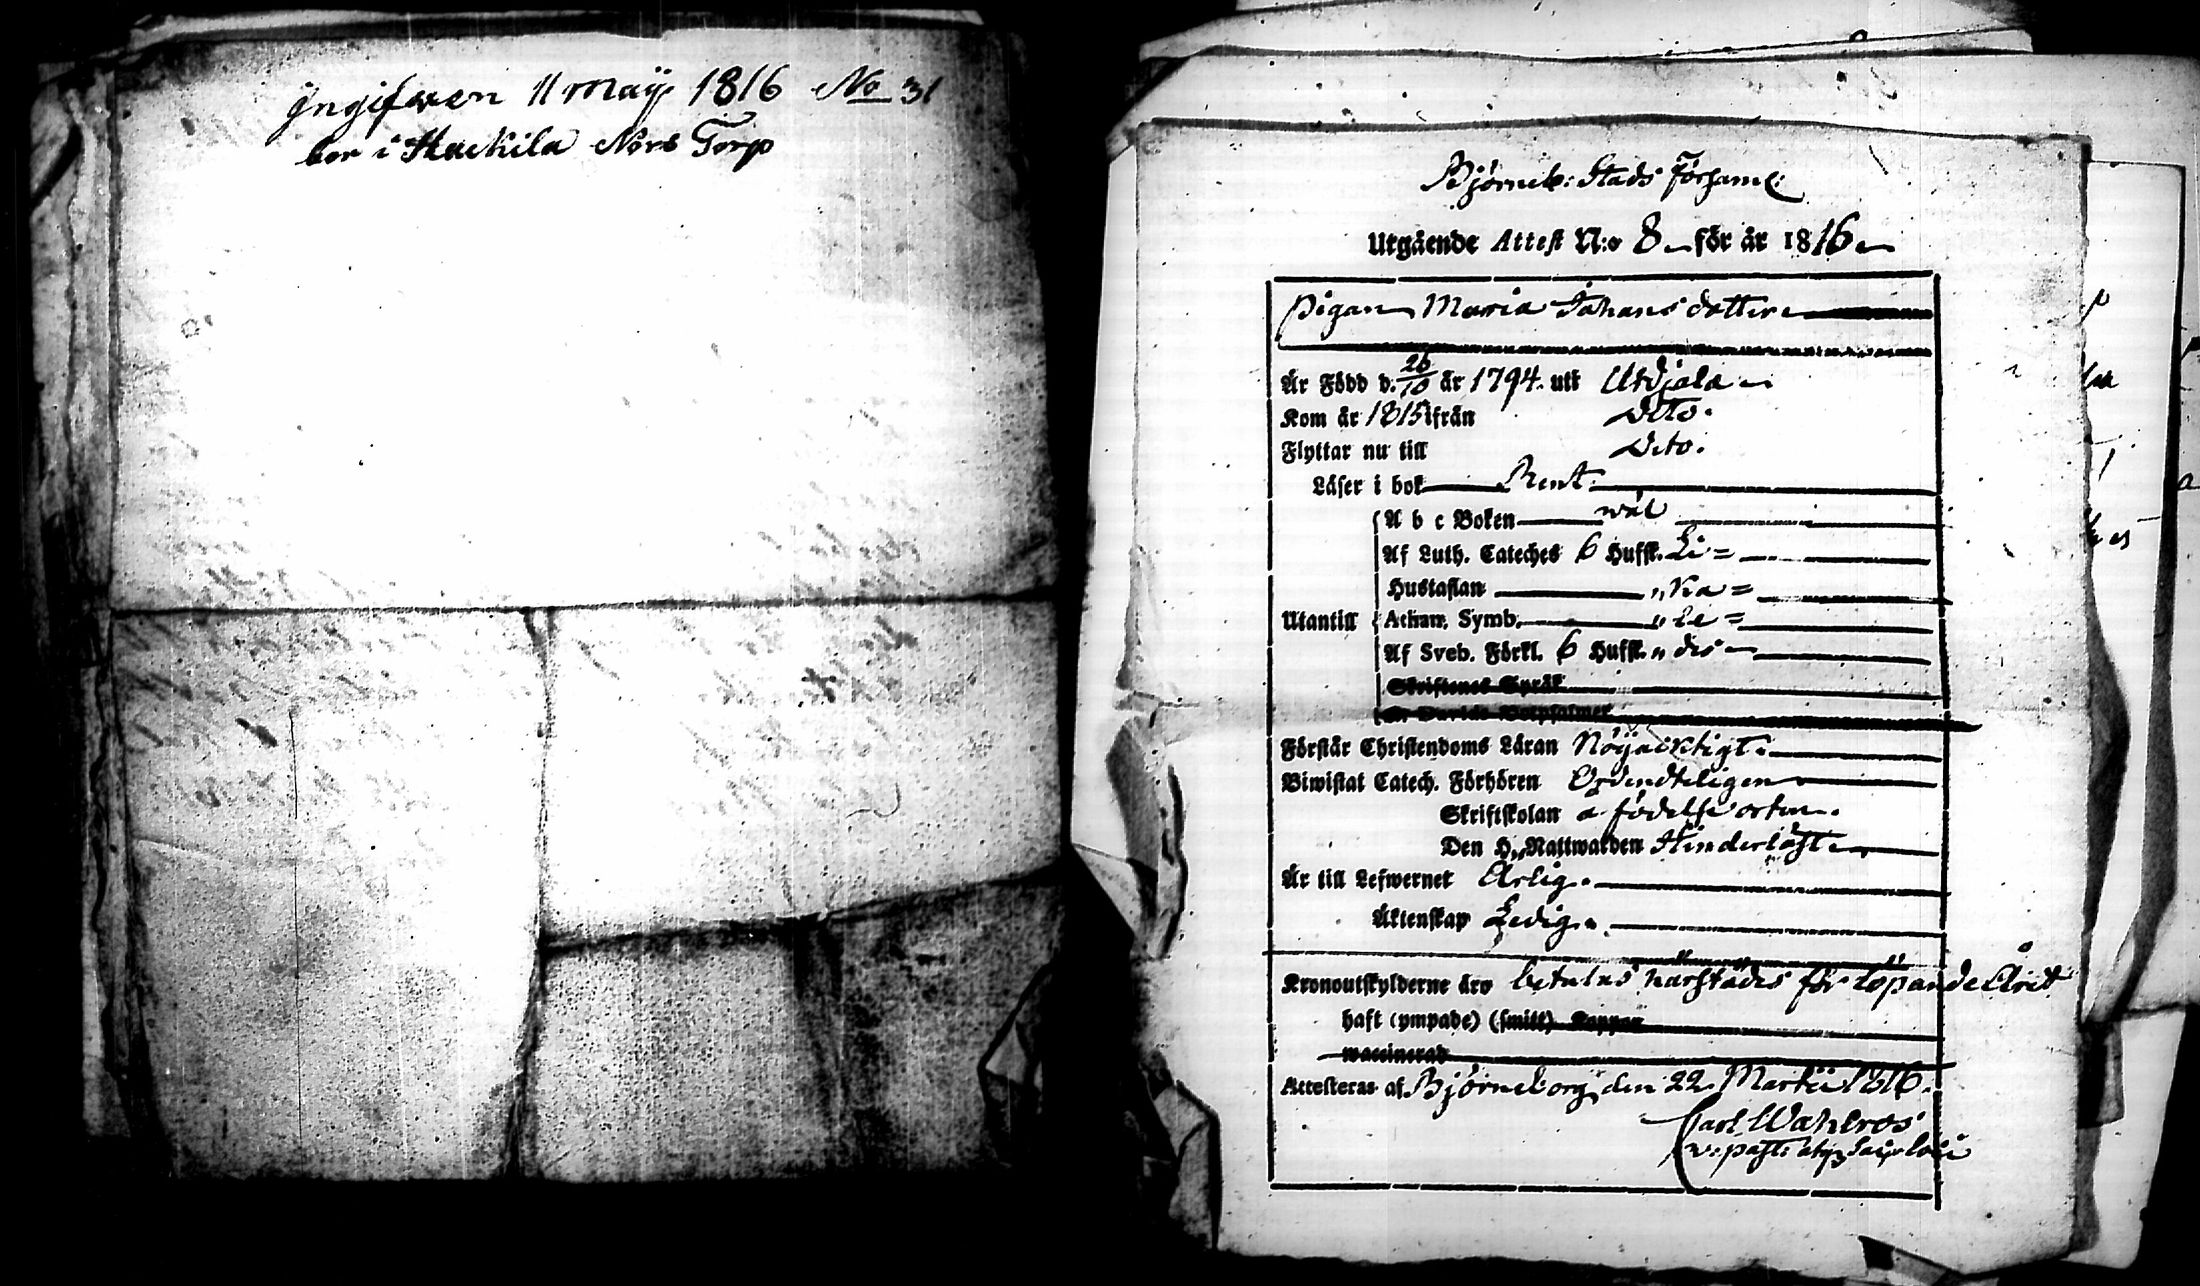 Ingifven 11 Maÿ 1816 No 31
bor i Stackila Nors Torp
Björneb: Stads Församl:
Utgående Attest N:o 8 för år 1816
Pigan Maria Johansdotter
Är Född d. 26/10 år 1794. uti Utvjala
Kom år 1815 ifrån Dito.
Flyttar nu till Dito.
Läser i bok Rent.
A b c Boken wäl
Af Luth. Cateches 6 Hufst. Li =
Hustaflan „ Ka =
Utantill Athan. Symb. „ Le =
Af Sveb. Förkl. 6 Hufst. „ des
Skriftenes Språk
Davids Botpsalmer
Förstår Christendoms Läran Nöÿacktigt
Biwistat Catech. Förhören Ordendteligen
Skriftskolan a födelse orten.
Den H. Nattwarden Hinderlöst
Är till Lefwernet Ärlig.
Äktenskap Ledig.
Kronoutskylderne äro betalas härstädes för löpande Året
haft (ympade) (smitt) Koppor
waccinerad
Attesteras af Björneborg den 22 Martii 1816.
Carl Wahlroos
v: past: